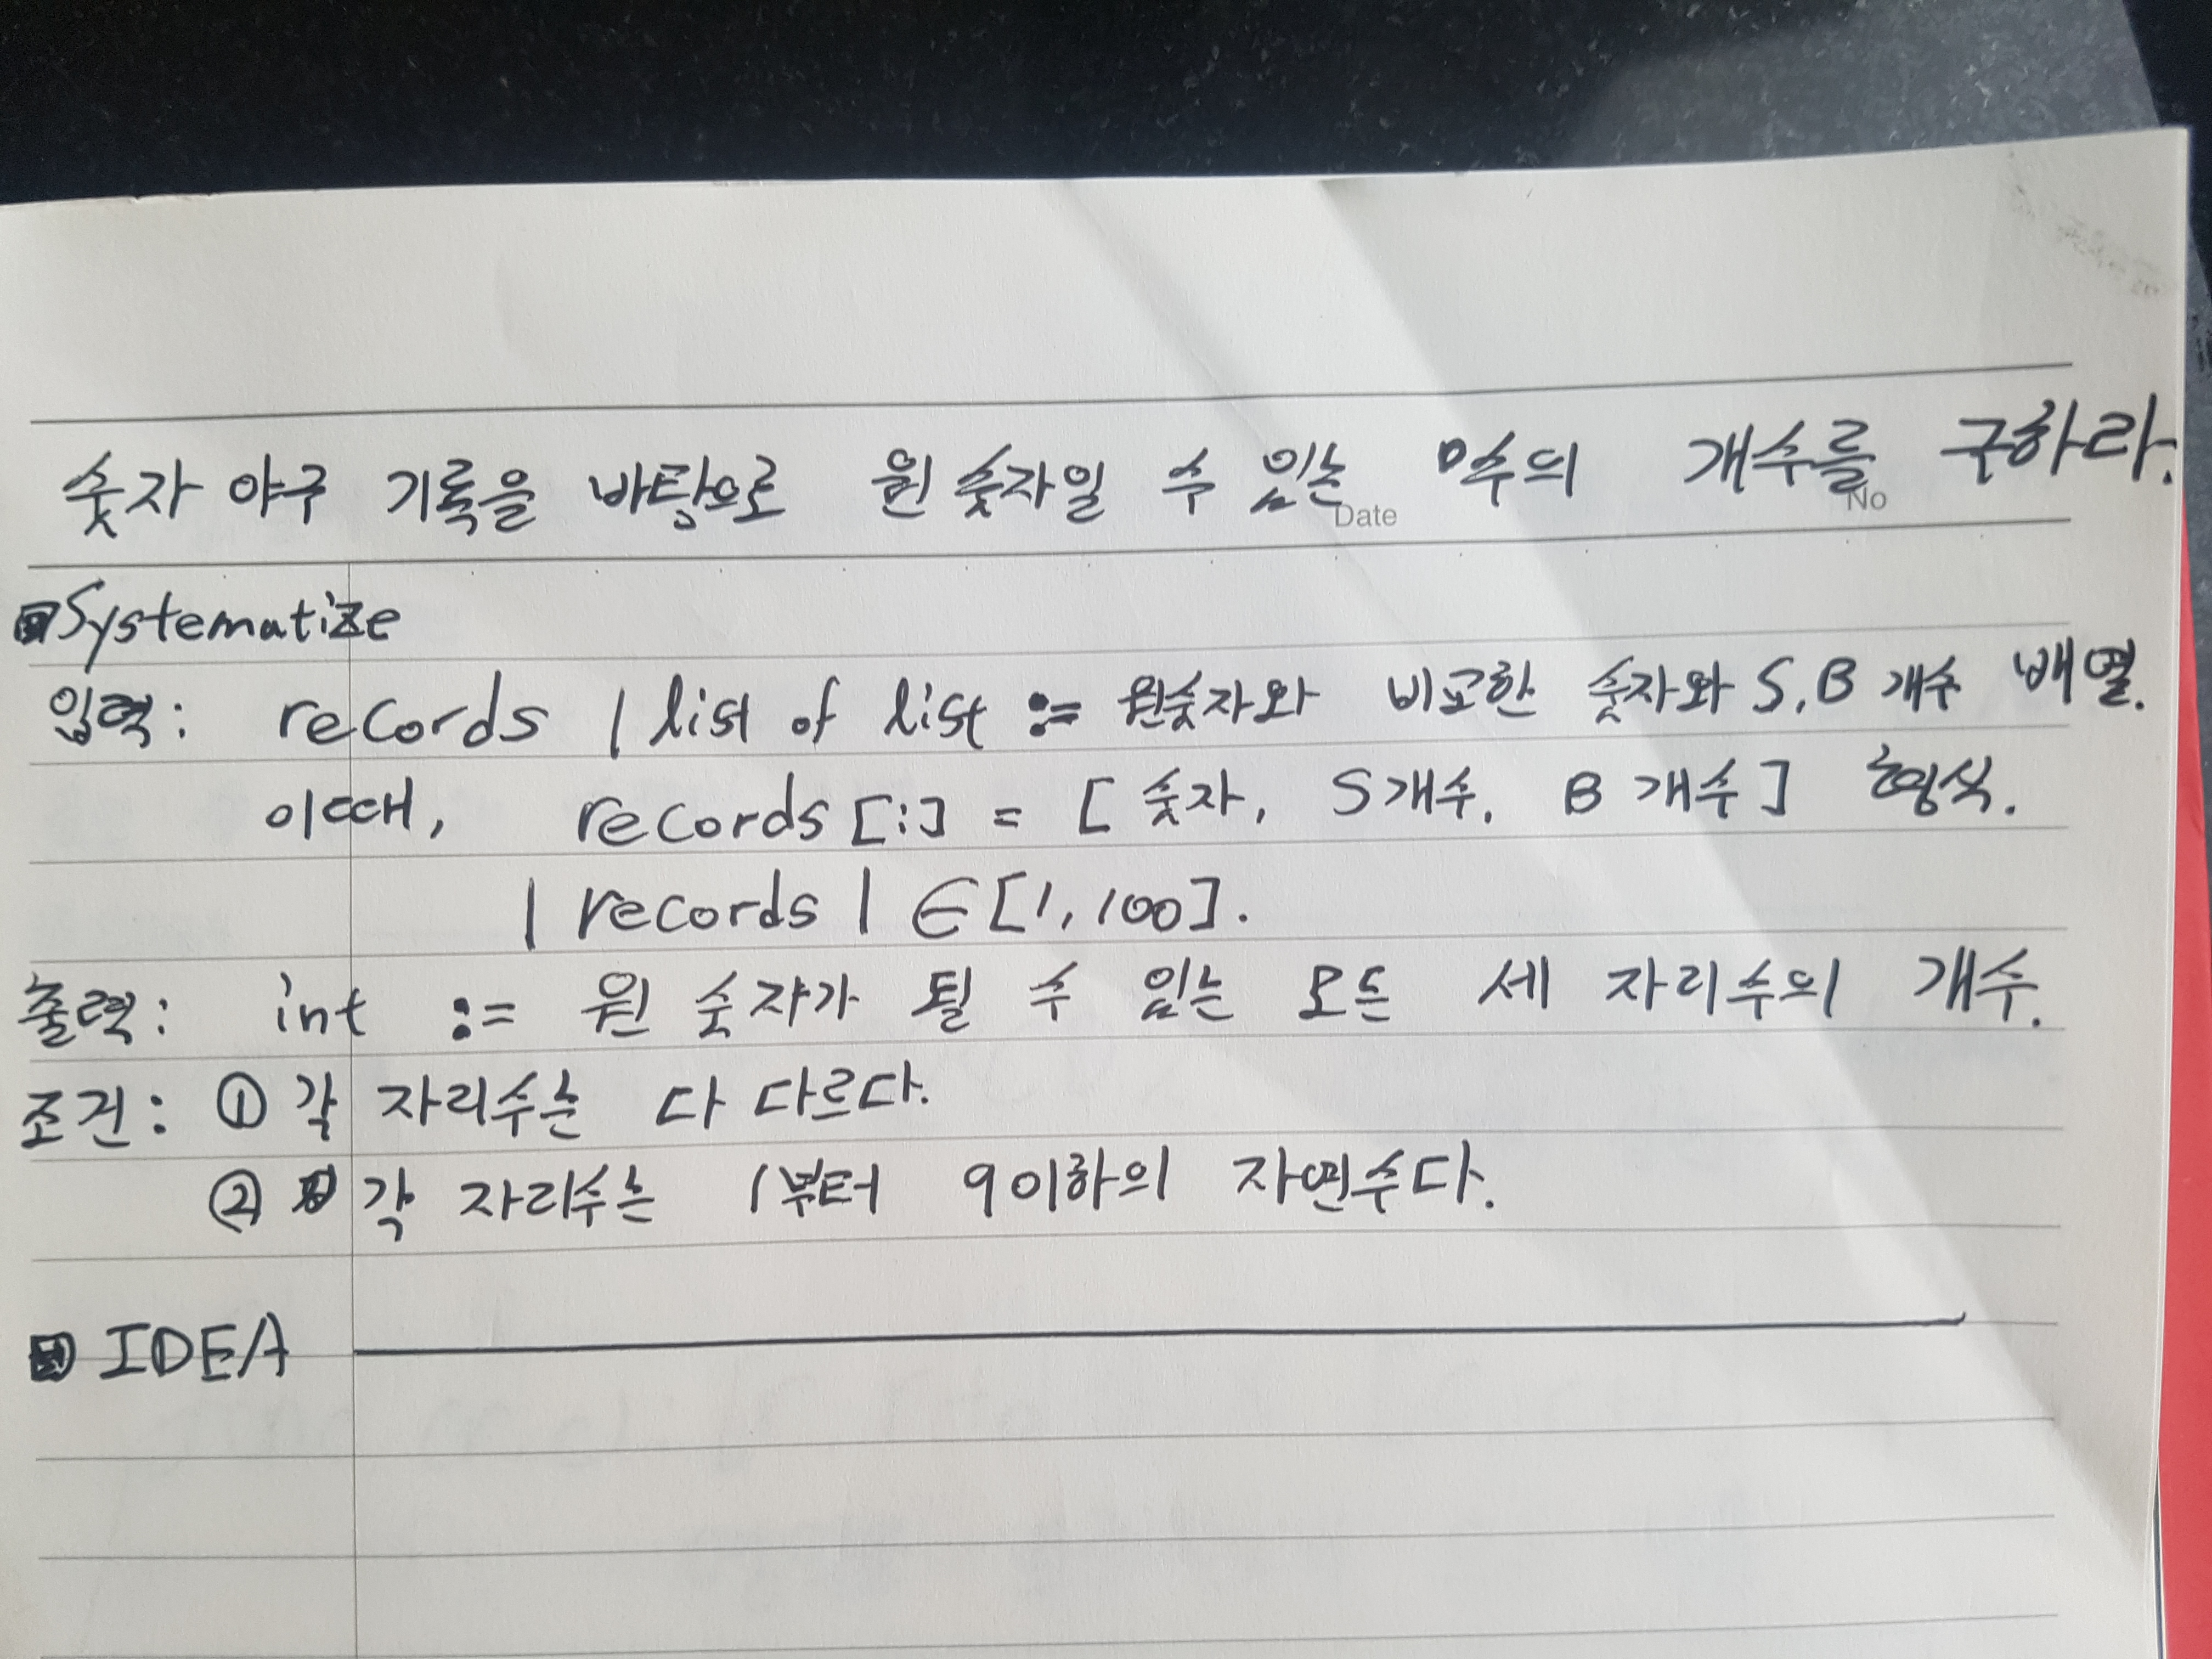 숫자 야구 기록을 바탕으로 원 숫자일 수 있는 수의 개수를 구하라.
Date
No
Systematize
입력: records | list of list := 원숫자와 비교한 숫자와 S, B 개수 배열.
이때, records[i] = [숫자, S개수, B개수] 형식.
| records | ∈ [1, 100].
출력: int := 원 숫자가 될 수 있는 모든 세 자리수의 개수.
조건: ① 각 자리수는 다 다르다.
② 각 자리수는 1부터 9이하의 자연수다.
IDEA